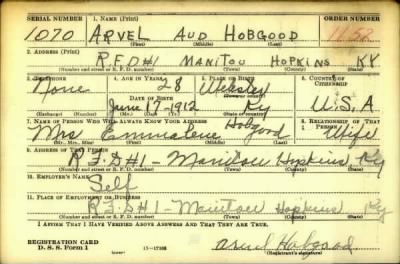 SERIAL NUMBER 1. NAME (Print) ORDER NUMBER
1070 ARVEL AUD HOBGOOD 1158
(First) (Middle) (Last)
2. ADDRESS (Print)
R.F.D#1 MANITOU HOPKINS KY
(Number and street or R. F. D. number) (Town) (County) (State)
3. TELEPHONE 4. AGE IN YEARS 5. PLACE OF BIRTH 6. COUNTRY OF CITIZENSHIP
None 28 Webster
DATE OF BIRTH
June 17-1912 Ky U.S.A
7. NAME OF PERSON WHO WILL ALWAYS KNOW YOUR ADDRESS 8. RELATIONSHIP OF THAT PERSON
Mrs Hobgood Wife
9. ADDRESS OF THAT PERSON
R.F.D#1-Manitou Hopkins Ky
(Number and street or R. F. D. number) (Town) (County) (State)
10. EMPLOYER'S NAME
Self
11. PLACE OF EMPLOYMENT OR BUSINESS
R.F.D#1-Manitou Hopkins Ky
(Number and street or R. F. D. number) (Town) (County) (State)
I AFFIRM THAT I HAVE VERIFIED ABOVE ANSWERS AND THAT THEY ARE TRUE.
REGISTRATION CARD
D. S. S. Form 1 Arvel Hobgood
(Registrant's signature)